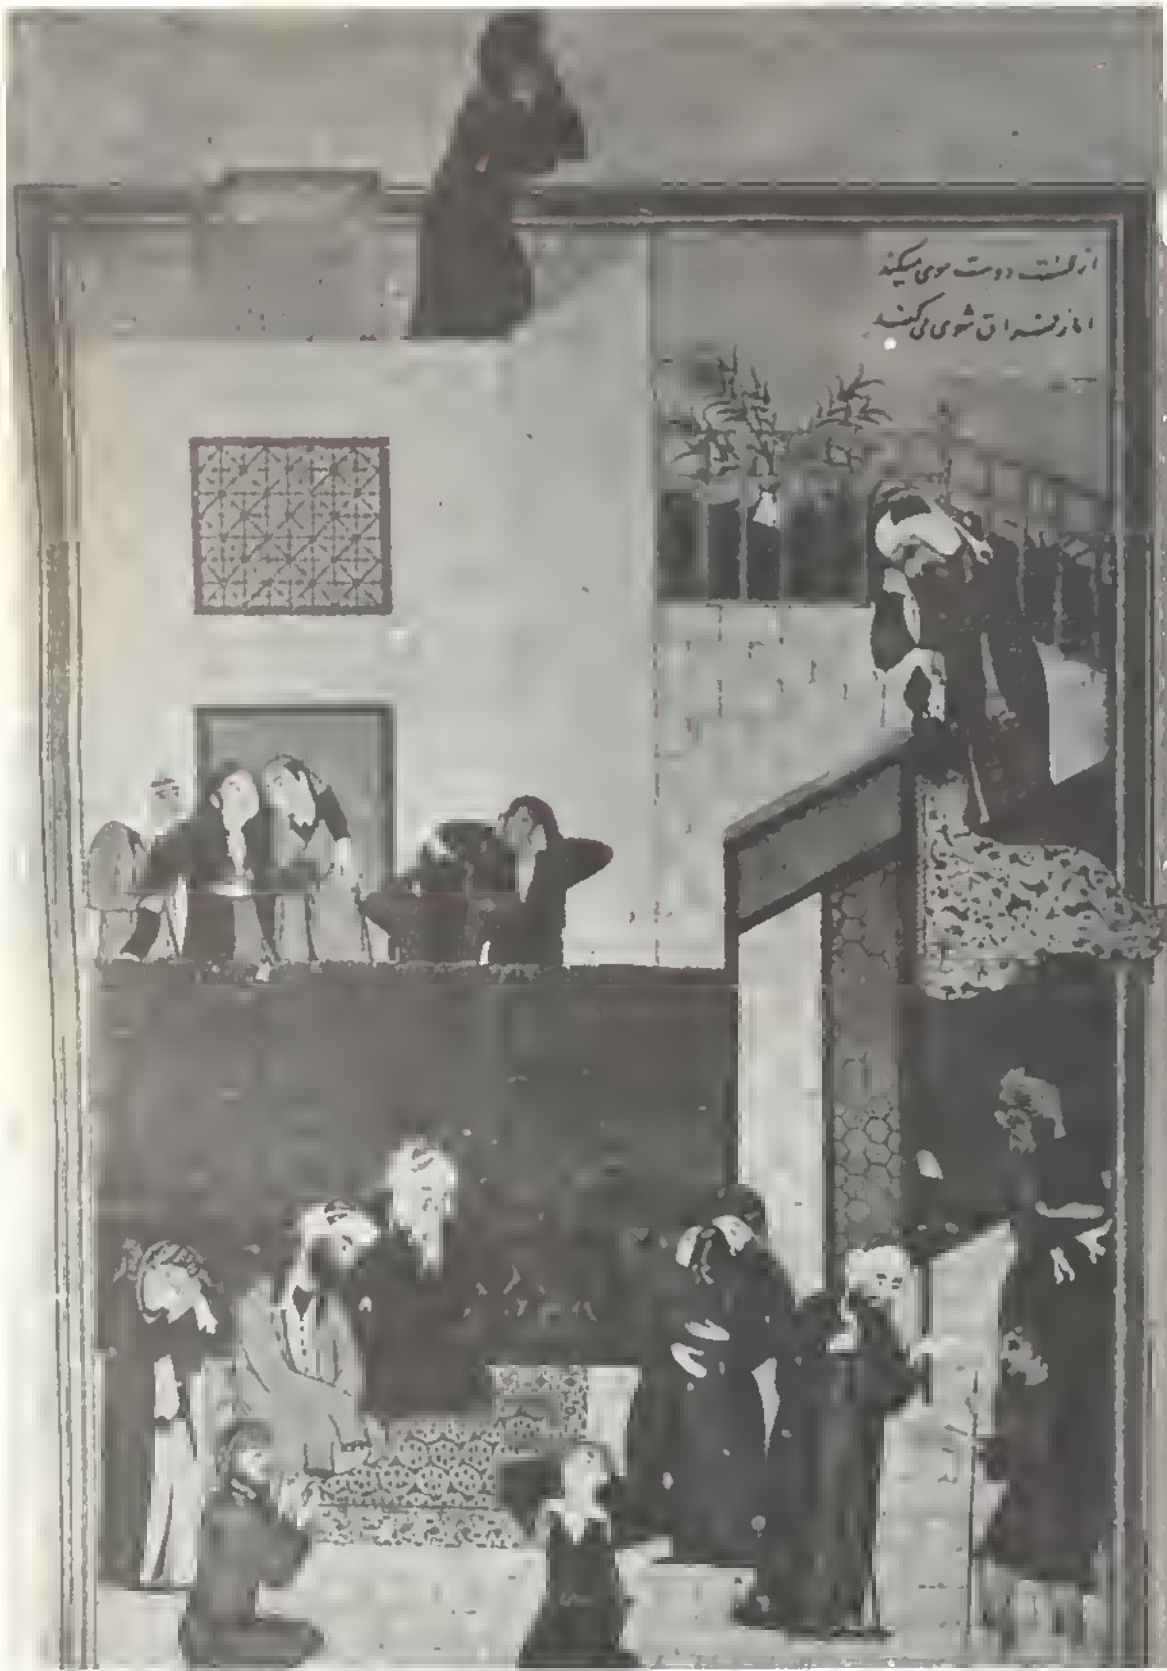 از محنت دوست موی میکند
اما ز فراق شوی می‌کند